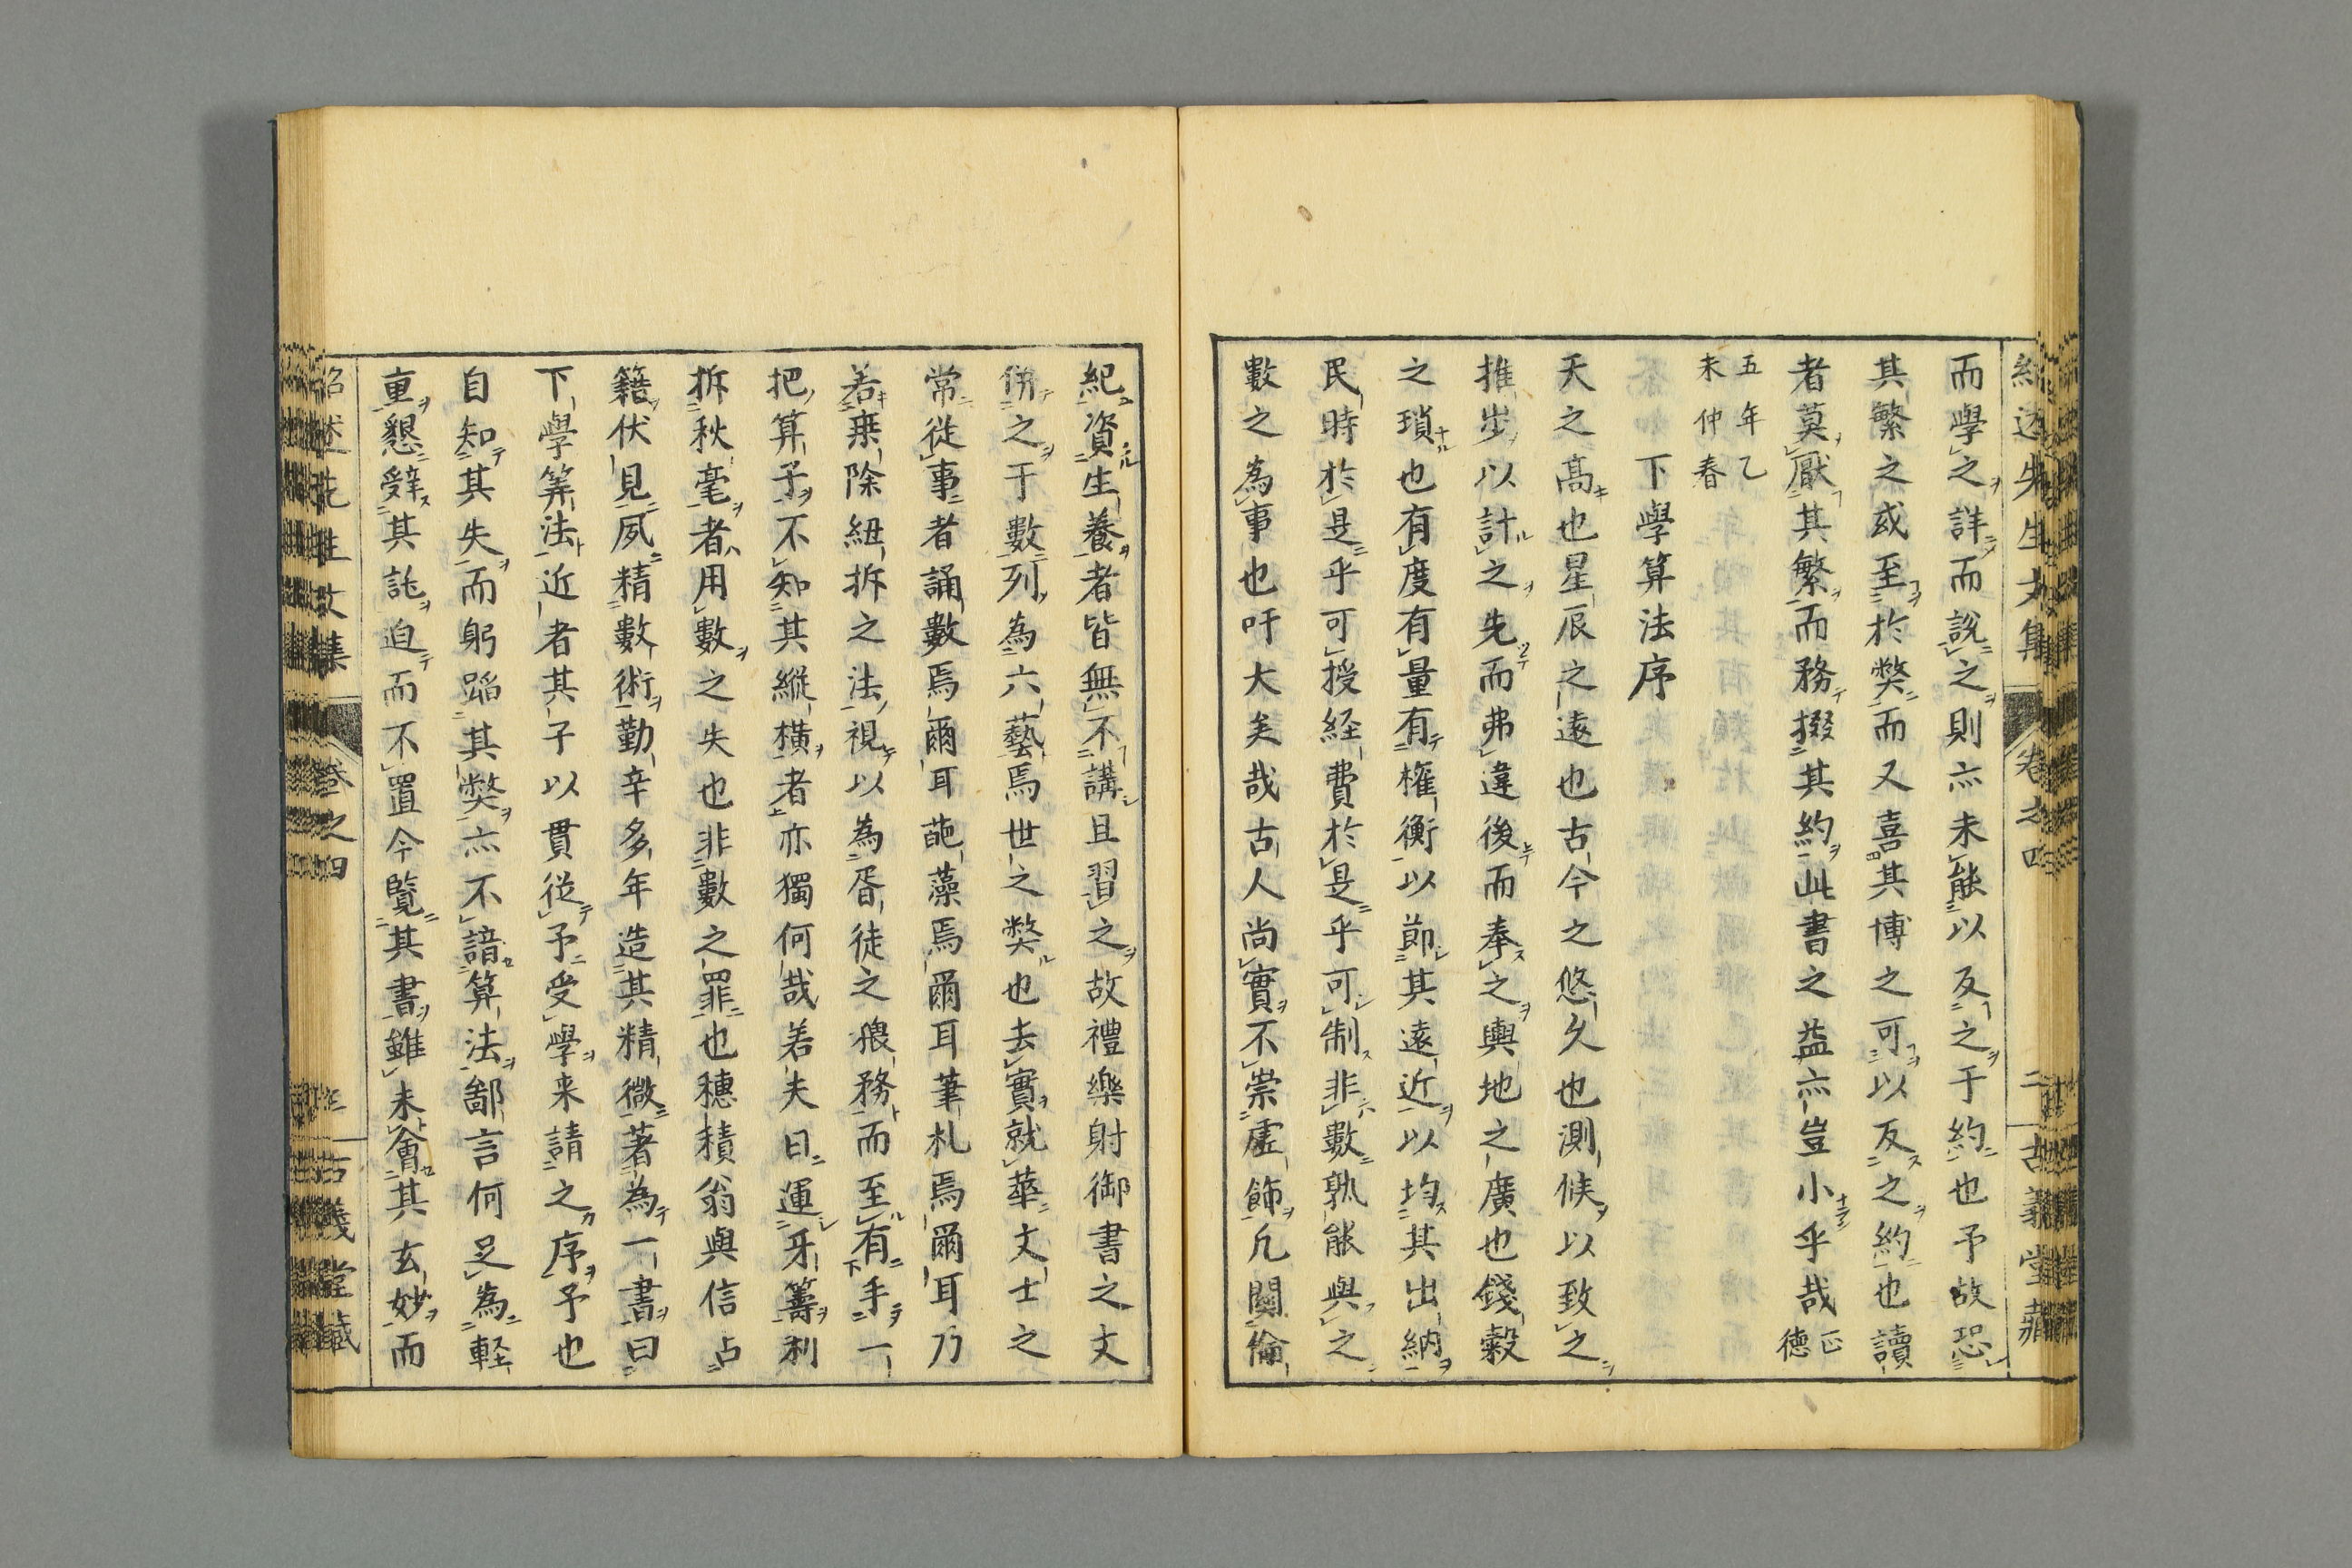 紹述先生文集 卷之四 二 古義堂藏
而學之詳而說之則亦未能以反之于約也予故恐
其繁之或至於弊而又喜其博之可以反之約也讀
者莫厭其繁而務掇其約此書之益亦豈小乎哉正德
五年乙未仲春
下學算法序
天之高也星辰之遠也古今之悠久也測候以致之
推步以計之先而弗違後而奉之輿地之廣也錢穀
之瑣也有度有量有權衡以節其遠近以均其出納
民時於是乎可授経費於是乎可制非數孰能與之
數之為事也吁大矣哉古人尚實不崇虛飾凢關倫
紀資生養者皆無不講且習之故禮樂射御書之文
併之于數列為六藝焉世之弊也去實就華文士之
常從事者誦數焉爾耳葩藻焉爾耳筆札焉爾耳乃
若乗除紐拆之法視以為胥徒之猥務而至有手一
把算子不知其縱横者亦獨何哉若夫日運牙籌利
拆秋毫者用數之失也非數之罪也穗積翁與信占
籍伏見夙精數術勤辛多年造其精微著為一書曰
下學筭法近者其子以貫從予受學来請之序予也
自知其失而躬蹈其弊亦不諳算法鄙言何足為軽
重懇辞其託迫而不置今覧其書雖未會其玄妙而
紹述先生文集 卷之四 三 古義堂藏